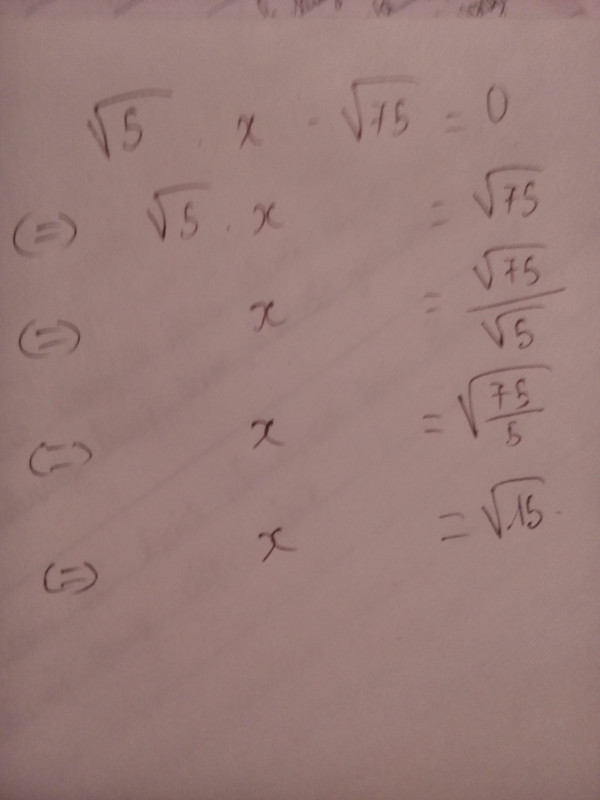 √5 . x - √75 = 0
(=) √5 . x = √75
(=) x = √75/√5
(=) x = √(75/5)
(=) x = √15.